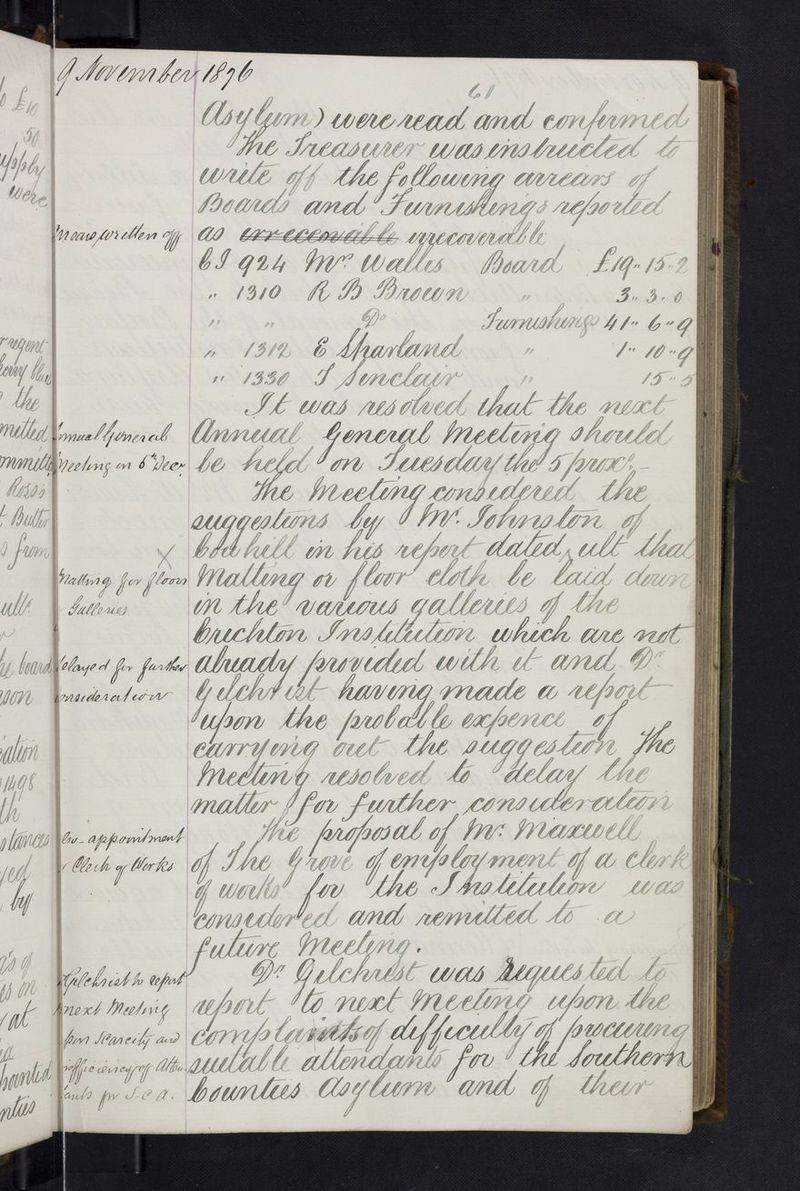 9 November 1876
61
Asylum) were read and confirmed
The Treasurer was instructed to
write off the following arrears of
Boards and Furnishings reported
Arrears written off
as irreceovable irrecoverable
C I 924 Mrs Walles Board £19,, 15,, 2
,, 1310 R B Brown ,, 3,, 3,, 0
,, ,, Do Furnishings 41,, 6,, 9
,, 1312 E Sharland ,, 1,, 10,, 9
,, 1330 J Sinclair ,, 15,, 5
It was resolved that the next
Annual General
Annual General Meeting should
Meeting on 5th Decr.
be held on Tuesday the 5 proxo. –
The Meeting considered the
suggestions by Mr. Johnston of
Cowhill in his report dated ult that
X
Matting for floors
Matting or floor cloth be laid down
Galleries
in the various galleries of the
Crichton Institution which are not
delayed for further
already provided with it and Dr
consideration
Gilchrist having made a report
upon the probable expence of
carrying out the suggestion The
Meeting resolved to delay the
matter for further consideration
appointment
The proposal of Mr. Maxwell
Clerk of Works
of The Grove of employment of a clerk
of works for the Institution was
considered and remitted to a
future Meeting.
Gilchrist to report
Dr Gilchrist was requested to
next Meeting
report to next Meeting upon the
upon scarcity and
complaints of difficulty of procuring
inefficiency of Atten
suitable attendants for the Southern
dants for S.C.A.
Counties Asylum and of their
£10
50
upply
were
the
mitted
Ross's
from
ult.
he board
1498
th
stances
yed
by
at